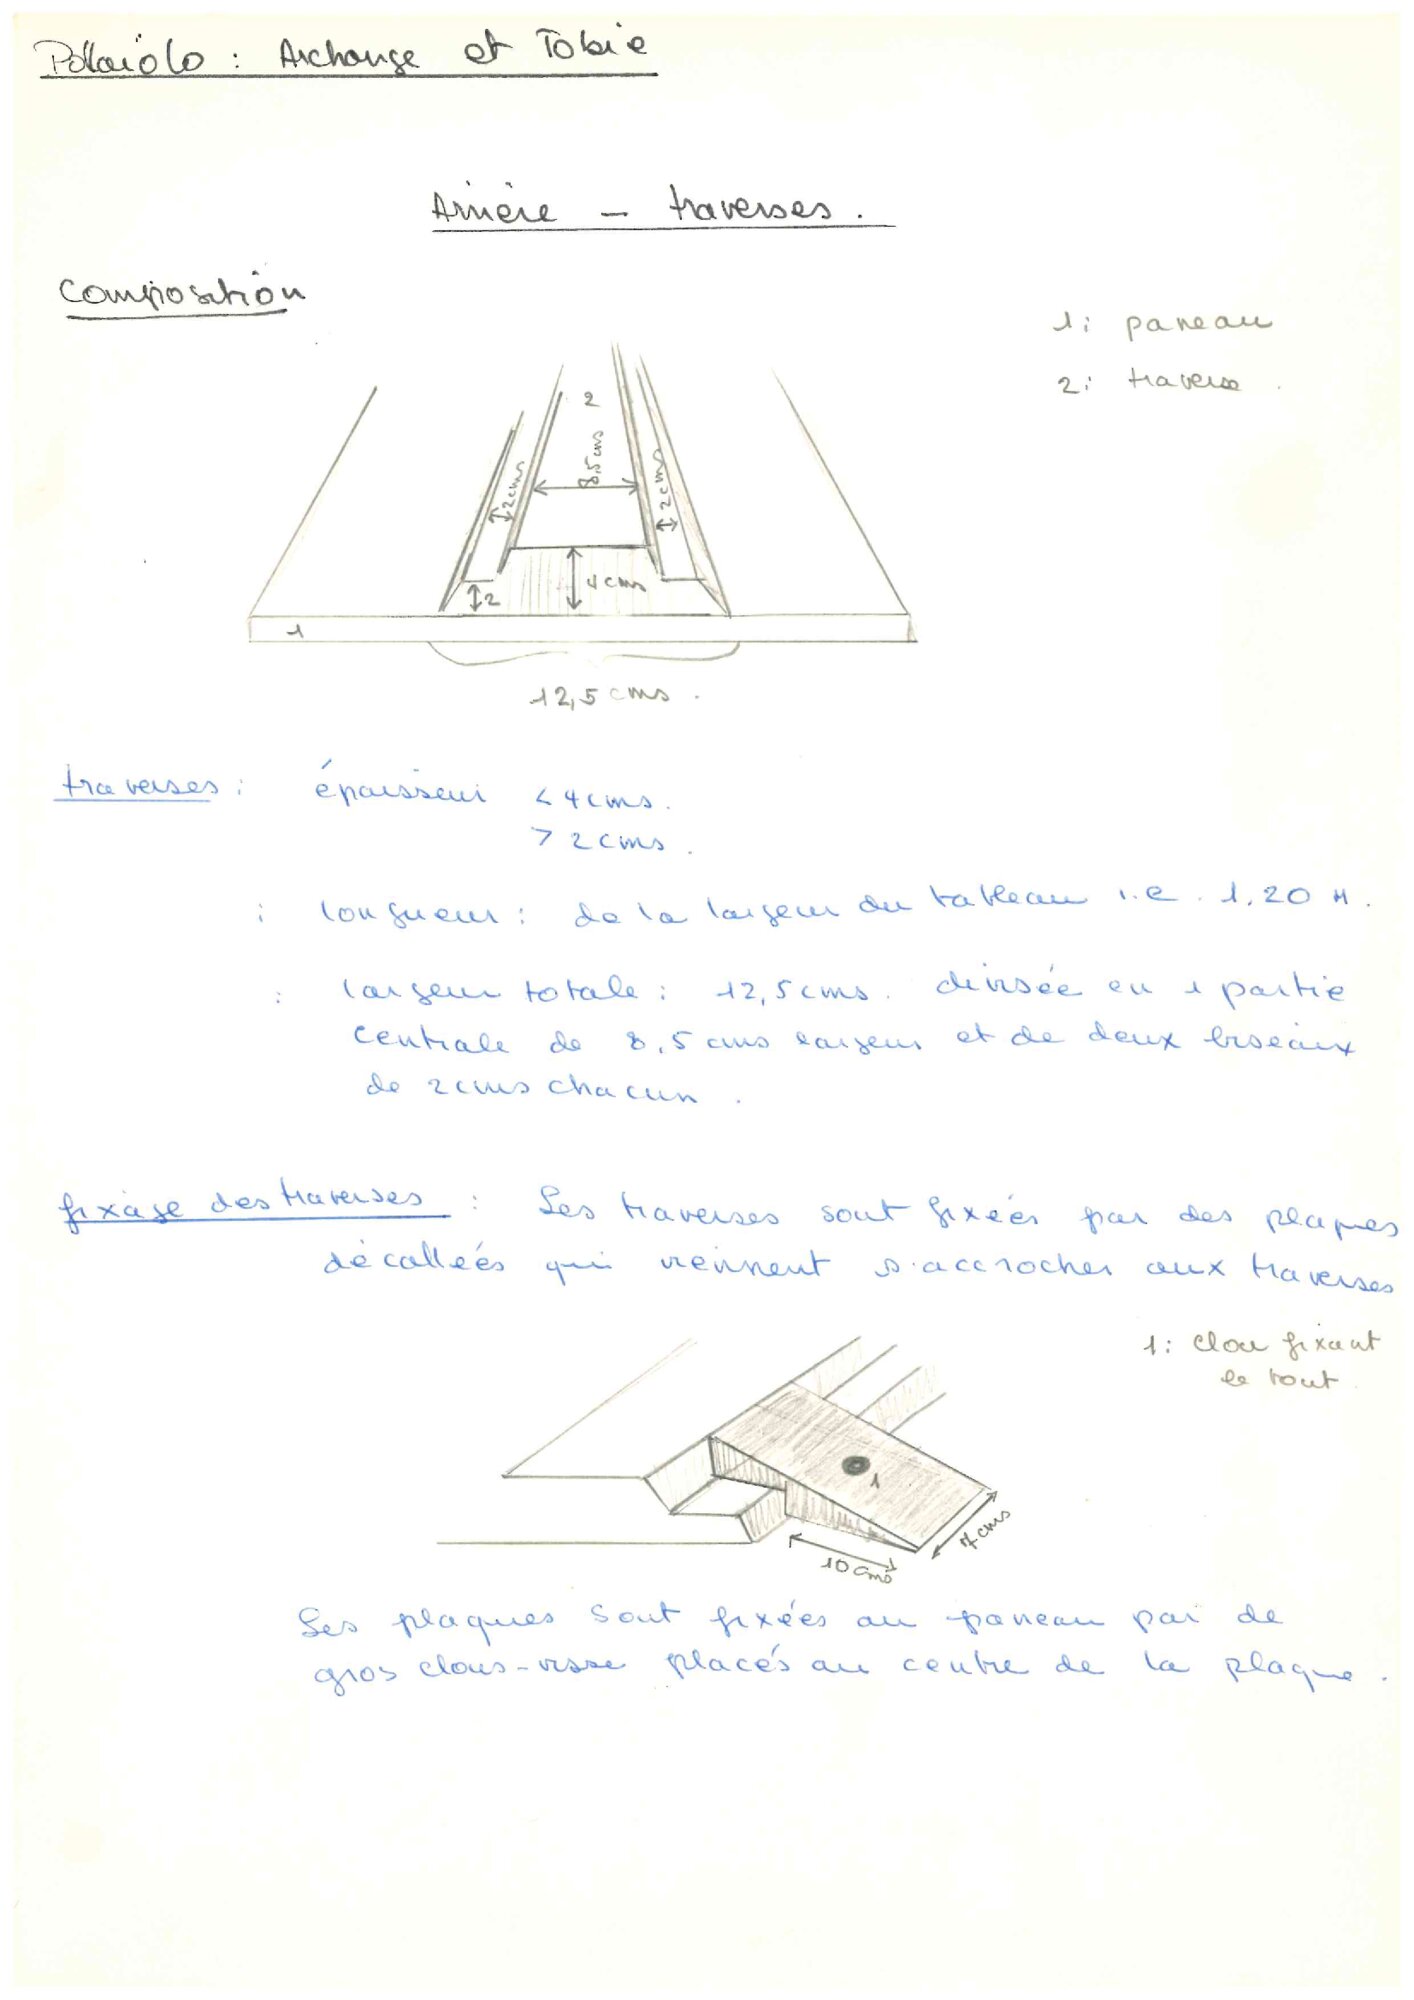 Pollaiolo : Archange et Tobie
Arrière - traverses.
Composition
1: paneau
2: traverse.
2
8,5cms
2cms
2cms
4cms
2
1
12,5cms.
traverses: épaisseur < 4cms.
> 2cms.
: longueur: de la largeur du tableau i.e. 1,20 M.
: largeur totale: 12,5cms. divisée en 1 partie
centrale de 8,5 cms largeur et de deux biseaux
de 2cms chacun.
fixage des traverses : Les traverses sont fixées par des plaques
décallées qui viennent s'accrocher aux traverses
1: clou fixant
le tout.
1
7cms
10cms
Les plaques sont fixées au paneau par de
gros clous-visse placés au centre de la plaque.